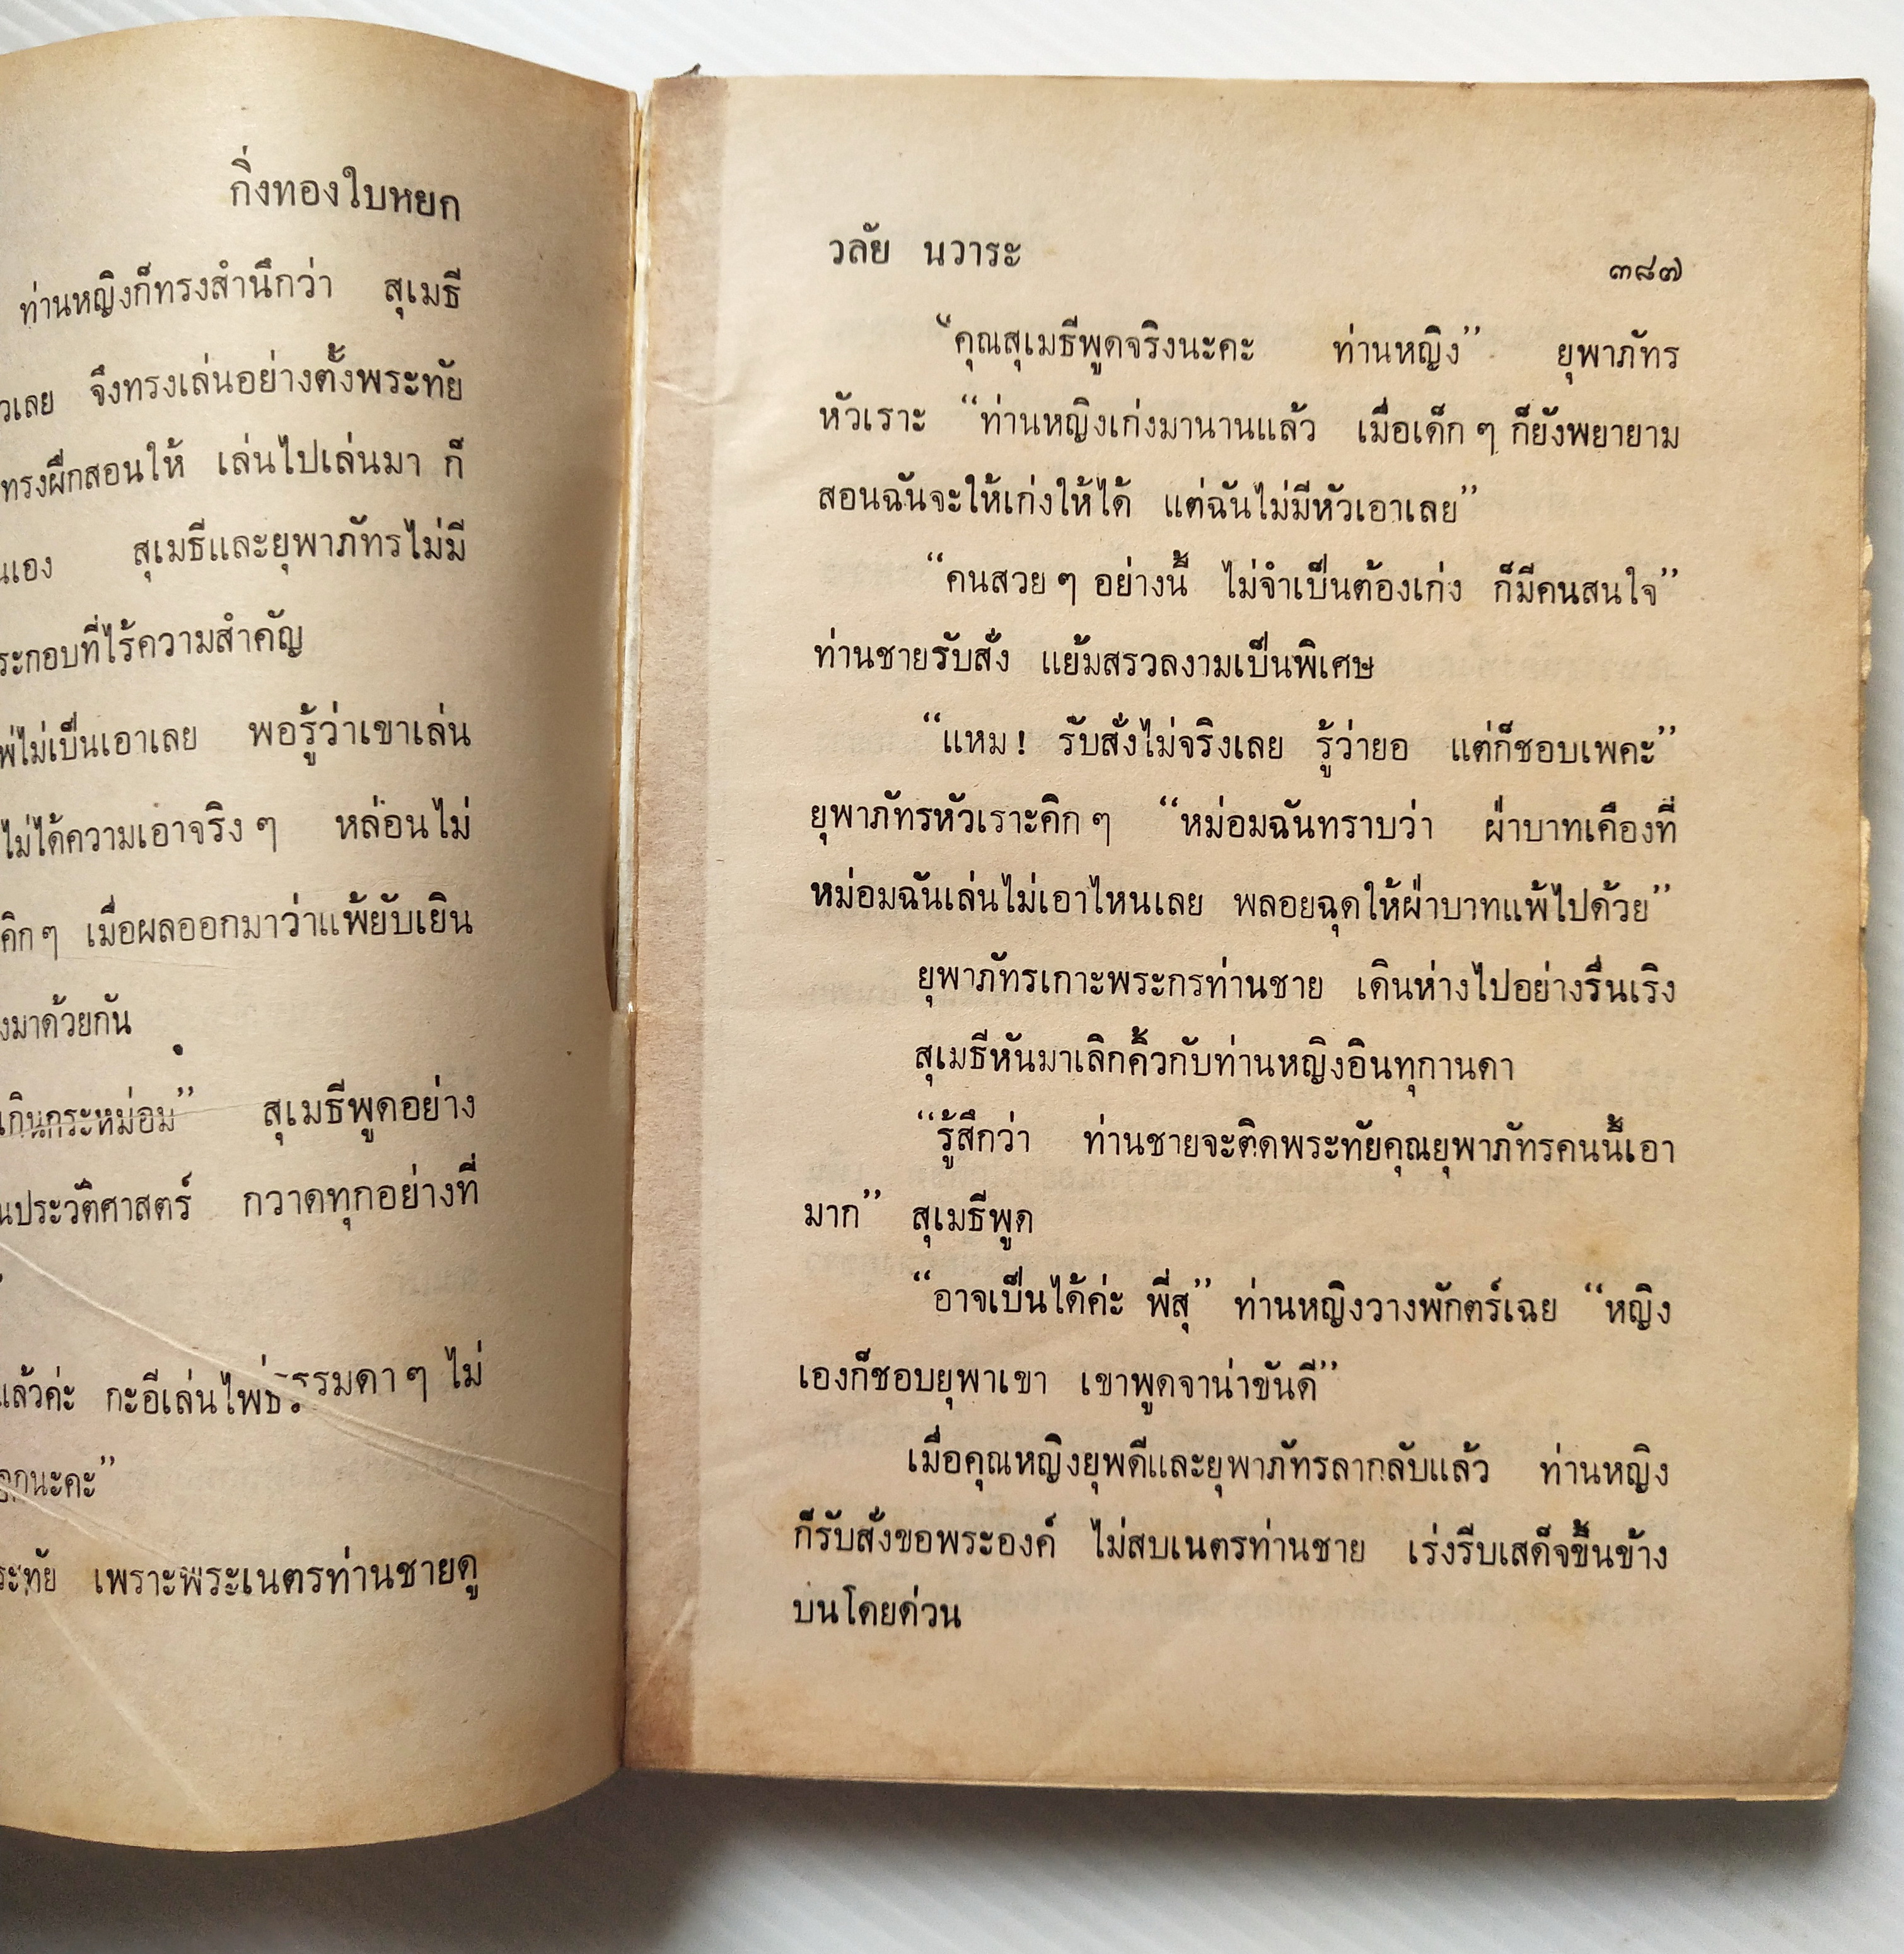 กิ่งทองใบหยก
ท่านหญิงก็ทรงสำนึกว่า สุเมธี
วเลย จึงทรงเล่นอย่างตั้งพระทัย
ทรงฝึกสอนให้ เล่นไปเล่นมา ก็
นเอง สุเมธีและยุพาภัทรไม่มี
ระกอบที่ไร้ความสำคัญ
พ่ไม่เป็นเอาเลย พอรู้ว่าเขาเล่น
ไม่ได้ความเอาจริง ๆ หล่อนไม่
คิก ๆ เมื่อผลออกมาว่าแพ้ยับเยิน
งมาด้วยกัน
เกินกระหม่อม” สุเมธีพูดอย่าง
นประวัติศาสตร์ กวาดทุกอย่างที่
แล้วค่ะ กะอีเล่นไพ่ธรรมดา ๆ ไม่
ถูกนะคะ”
ระทัย เพราะพระเนตรท่านชายดู
วลัย นวาระ
๓๘๗
“คุณสุเมธีพูดจริงนะคะ ท่านหญิง” ยุพาภัทร
หัวเราะ “ท่านหญิงเก่งมานานแล้ว เมื่อเด็ก ๆ ก็ยังพยายาม
สอนฉันจะให้เก่งให้ได้ แต่ฉันไม่มีหัวเอาเลย”
“คนสวย ๆ อย่างนี้ ไม่จำเป็นต้องเก่ง ก็มีคนสนใจ”
ท่านชายรับสั่ง แย้มสรวลงามเป็นพิเศษ
“แหม! รับสั่งไม่จริงเลย รู้ว่ายอ แต่ก็ชอบเพคะ”
ยุพาภัทรหัวเราะคิก ๆ “หม่อมฉันทราบว่า ฝ่าบาทเคืองที่
หม่อมฉันเล่นไม่เอาไหนเลย พลอยฉุดให้ฝ่าบาทแพ้ไปด้วย”
ยุพาภัทรเกาะพระกรท่านชาย เดินห่างไปอย่างรื่นเริง
สุเมธีหันมาเลิกคิ้วกับท่านหญิงอินทุกานดา
“รู้สึกว่า ท่านชายจะติดพระทัยคุณยุพาภัทรคนนี้เอา
มาก” สุเมธีพูด
“อาจเป็นได้ค่ะ พี่สุ” ท่านหญิงวางพักตร์เฉย “หญิง
เองก็ชอบยุพาเขา เขาพูดจาน่าขันดี”
เมื่อคุณหญิงยุพดีและยุพาภัทรลากลับแล้ว ท่านหญิง
ก็รับสั่งขอพระองค์ ไม่สบเนตรท่านชาย เร่งรีบเสด็จขึ้นข้าง
บนโดยด่วน